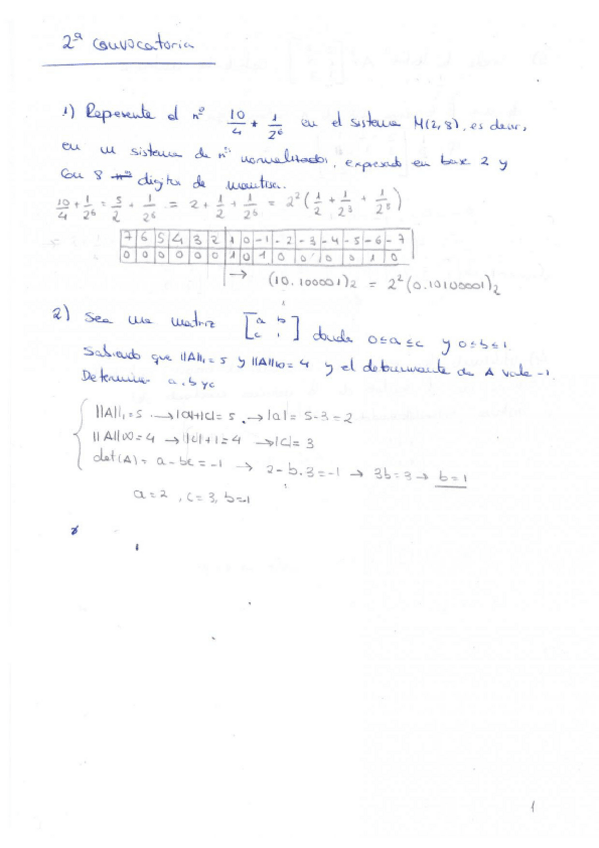 2ª Convocatoria
1) Represente el nº 10/4 + 1/2⁶ en el sistema M(2,8), es decir,
en un sistema de nº normalizados, expresado en base 2 y
con 8 digitos de mantisa.
10/4 + 1/2⁶ = 5/2 + 1/2⁶ = 2 + 1/2 + 1/2⁶ = 2²(1/2 + 1/2³ + 1/2⁸)
7 6 5 4 3 2 1 0 -1 -2 -3 -4 -5 -6 -7
0 0 0 0 0 0 1 0 1 0 0 0 0 1 0
→ (10.100001)₂ = 2²(0.10100001)₂
2) Sea una matriz [a b
c 1] donde 0≤a≤c y 0≤b≤1
Sabiendo que ||A||₁=5 y ||A||∞=4 y el determinante de A vale -1.
Determinar a, b y c
||A||₁=5 → |a|+|c|=5 → |a|=5-3=2
||A||∞=4 → |c|+1=4 → |c|=3
det(A)= a-bc=-1 → 2-b.3=-1 → 3b=3 → b=1
a=2, c=3, b=1
1